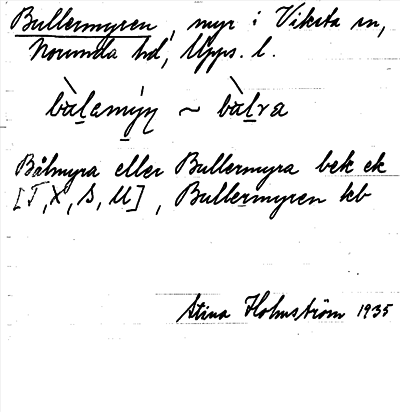 Bullermyren, myr i Viksta sn,
Norunda hd, Upps. l.
bàlamýn ~ bàlra
Bålmyra eller Bullermyra bek ek
[T, X, S, U], Bullermyren kb
Stina Holmström 1935